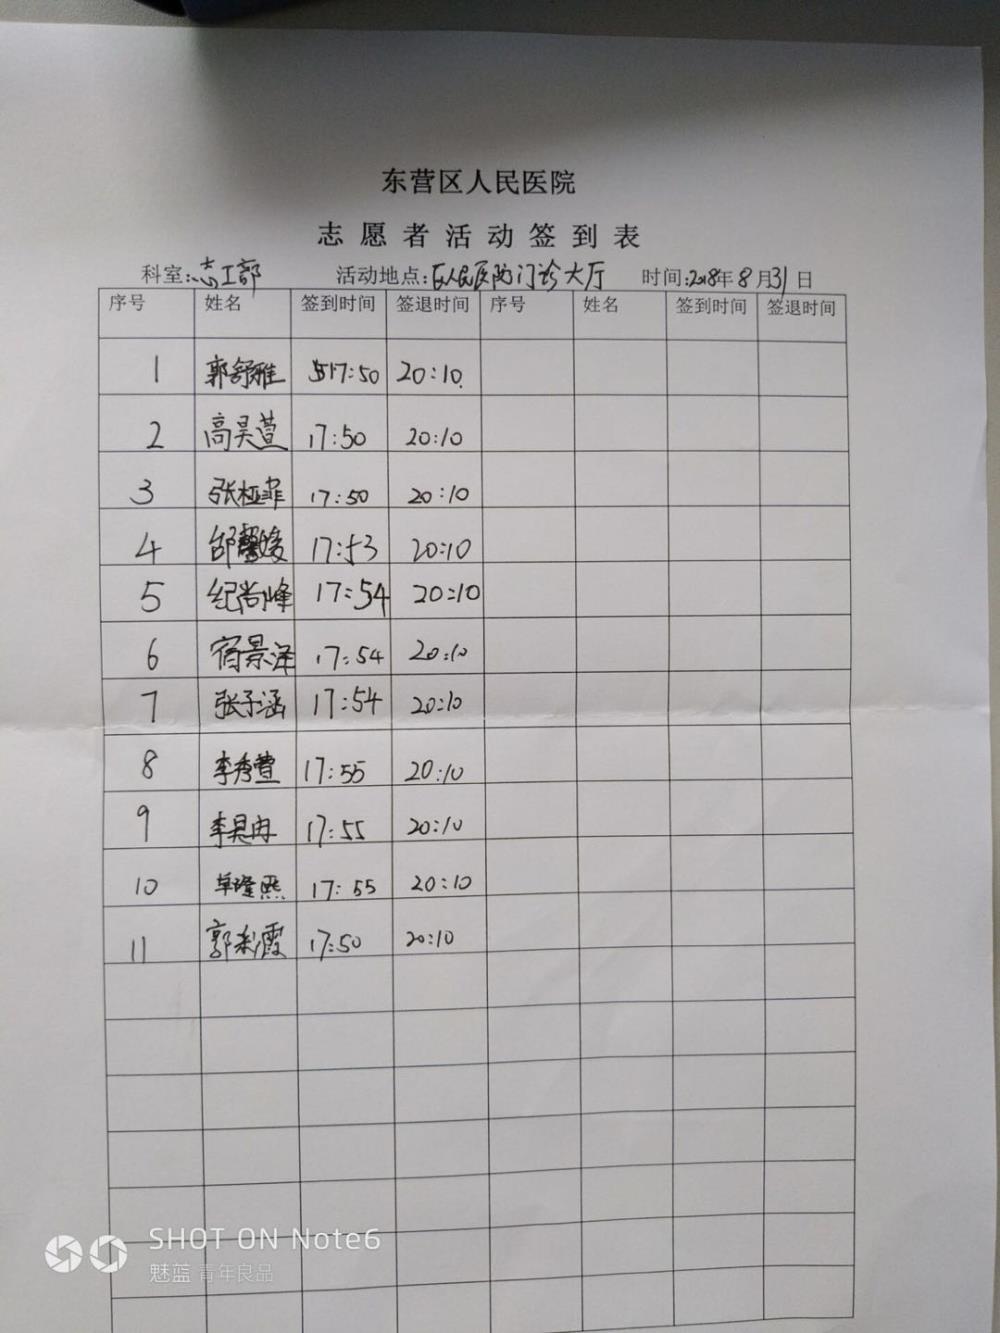 东营区人民医院
志愿者活动签到表
科室:志工部 活动地点:区人民医院门诊大厅 时间:2018年8月31日
序号 姓名 签到时间 签退时间 序号 姓名 签到时间 签退时间
1 郭舒雅 17:50 20:10
2 高昊萱 17:50 20:10
3 张桠菲 17:50 20:10
4 邰馨媛 17:53 20:10
5 纪尚峰 17:54 20:10
6 宿景泽 17:54 20:10
7 张子涵 17:54 20:10
8 李秀萱 17:55 20:10
9 李昊冉 17:55 20:10
10 隆熙 17:55 20:10
11 郭彩霞 17:50 20:10
SHOT ON Note6
魅蓝 青年良品